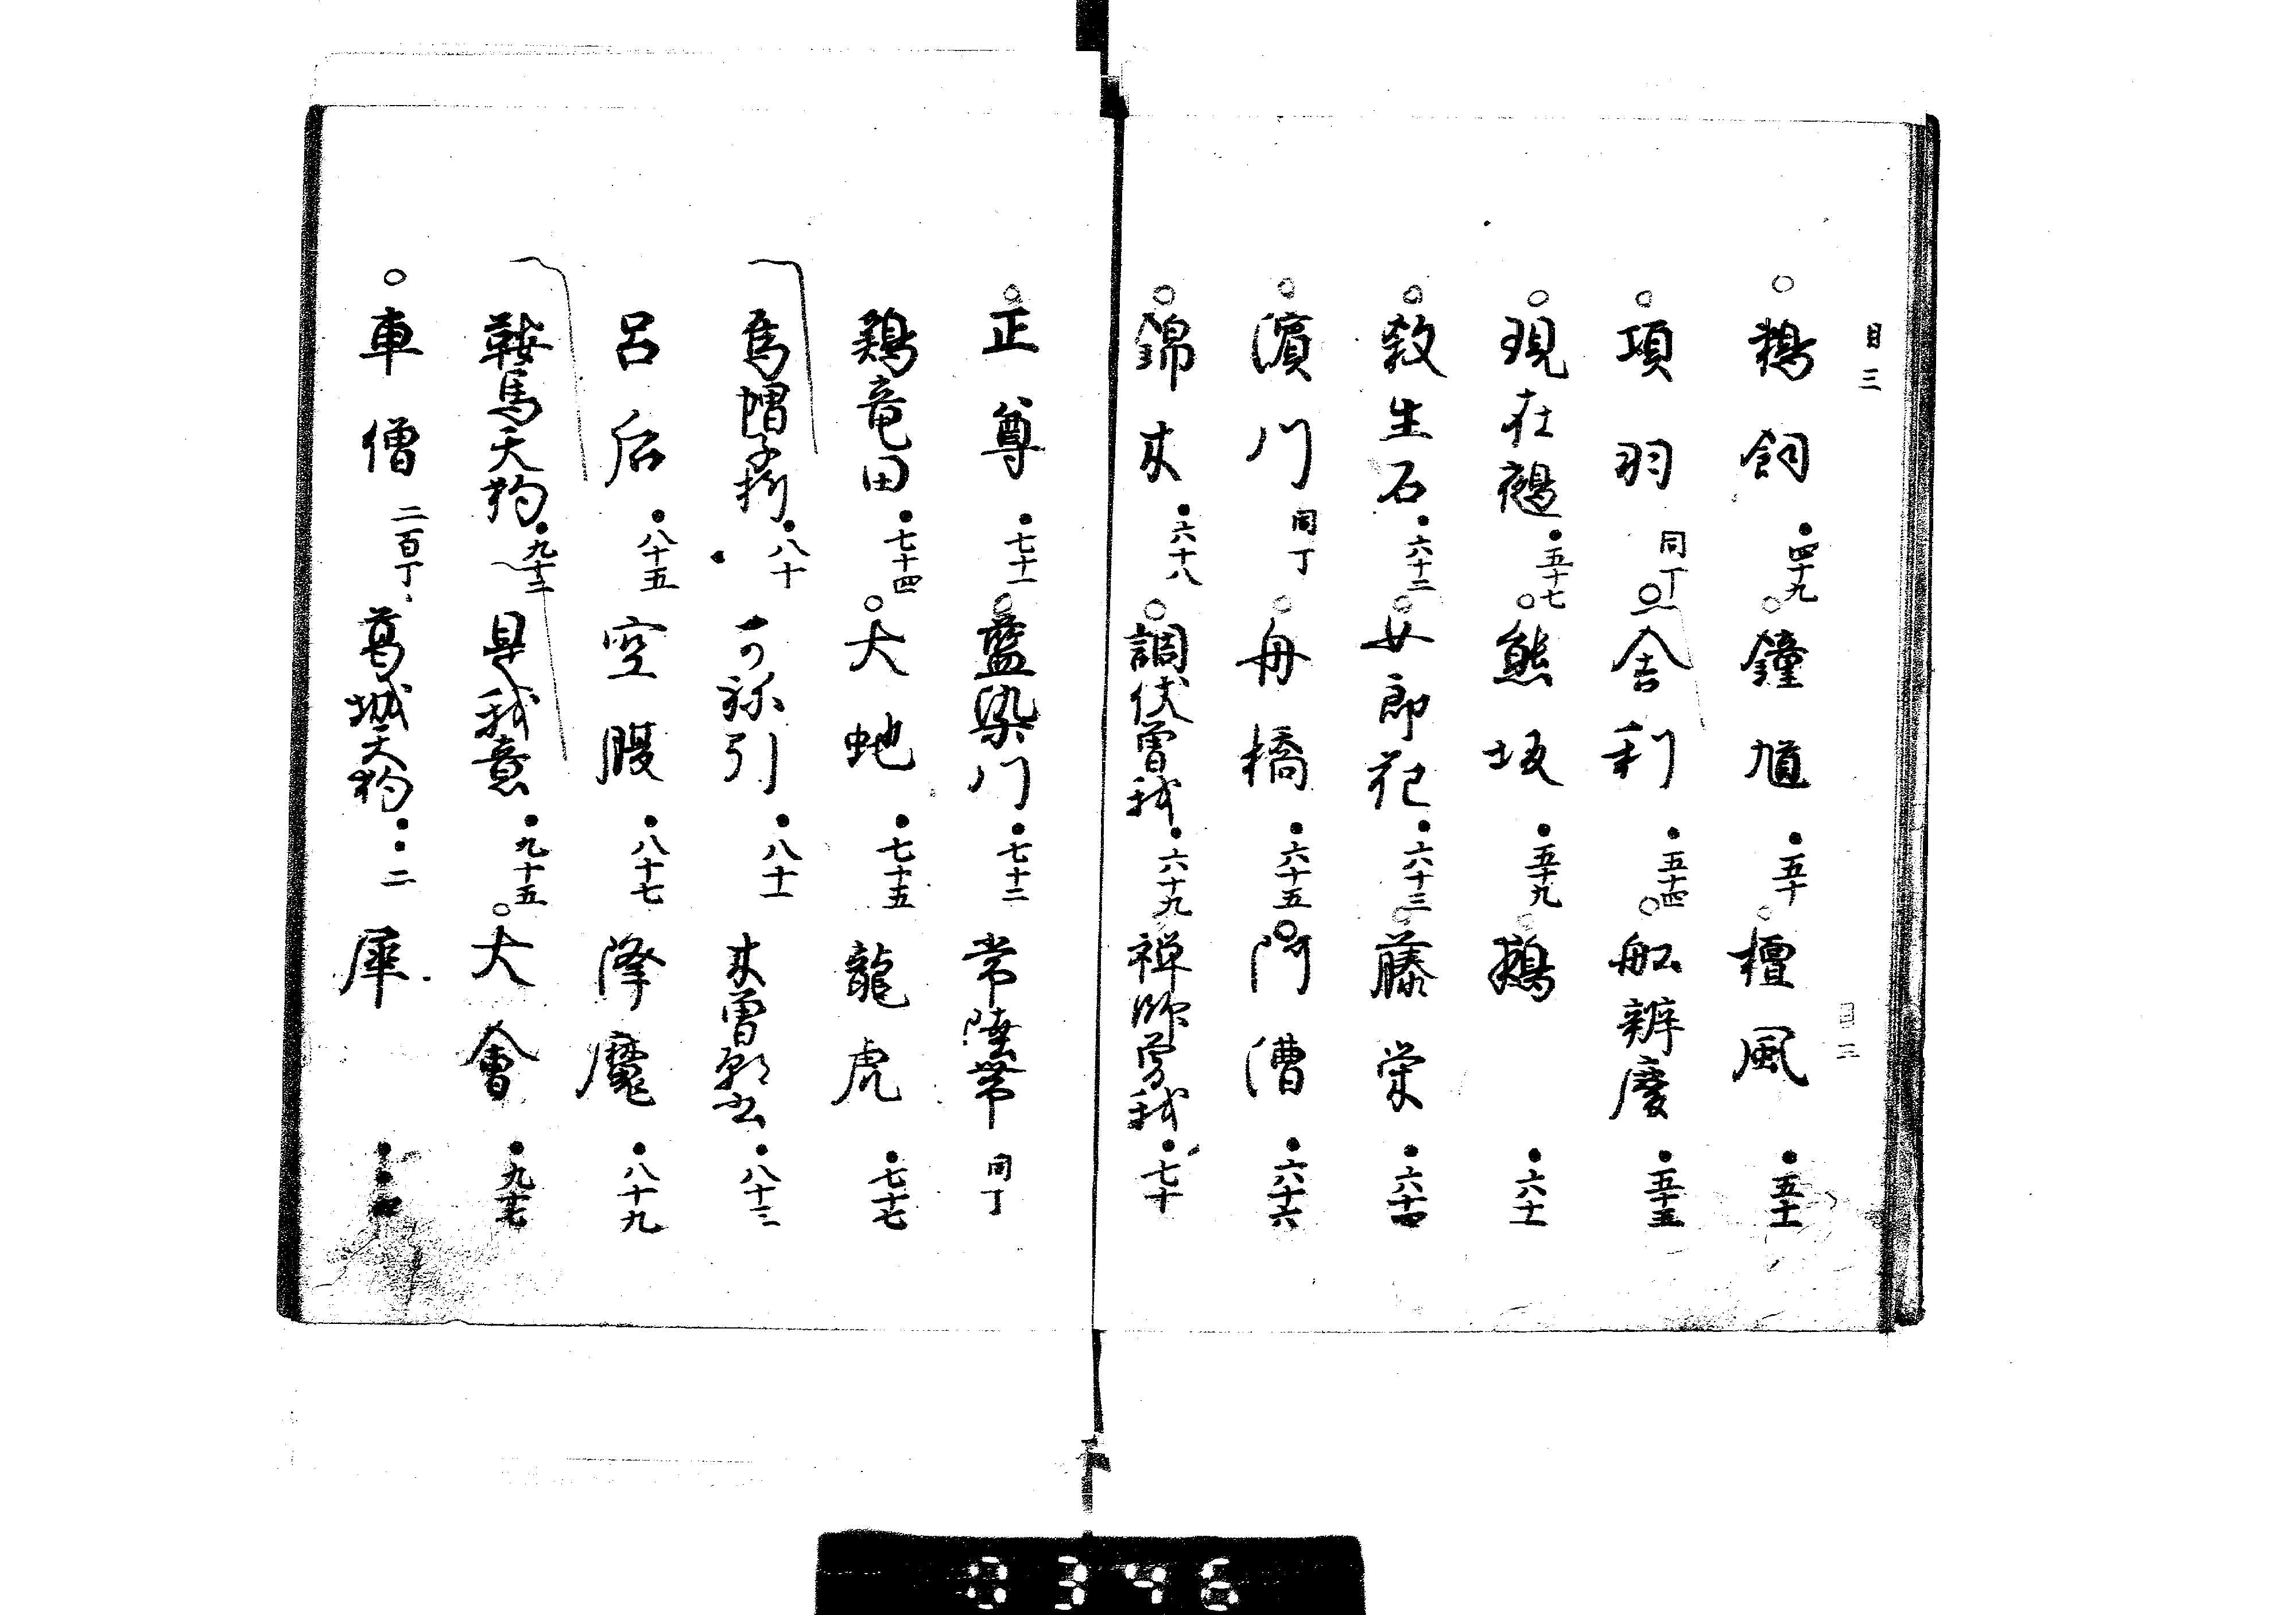 目三
○鵜飼 •四十九 ○鐘馗 •五十 ○檀風 •五十一
○項羽 同丁 ○舎利 •五十四 ○船辨慶 •五十五
○現在鵺 •五十七 ○熊坂 •五十九 ○鵺 •六十一
○殺生石 •六十二 ○女郎花 •六十三 ○藤栄 •六十四
○濱川 同丁 ○舟橋 •六十五 ○阿漕 •六十六
○錦木 •六十八 ○調伏曽我 •六十九 禅師曽我 •七十
○正尊 •七十一 ○藍染川 •七十二 常陸帯 同丁
鶏竜田 •七十四 ○大蛇 •七十五 龍虎 •七十七
烏帽子折 •八十 一可祢引 •八十一 木曽願書 •八十三
呂后 •八十五 空腹 •八十七 降魔 •八十九
鞍馬天狗 •九十二 是我意 •九十五 ○大會 •九十七
○車僧 二百丁 葛城天狗 ••二 犀 ••四
0346